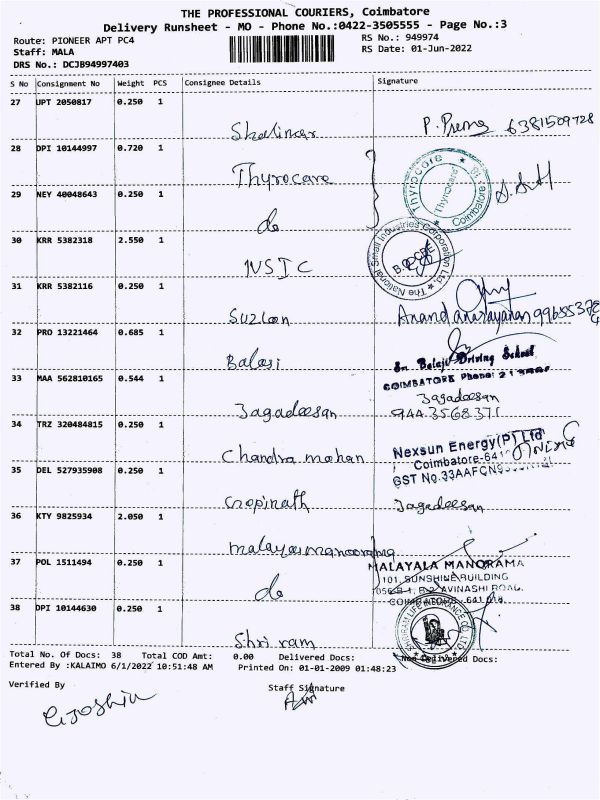 THE PROFESSIONAL COURIERS, Coimbatore
Delivery Runsheet - MO - Phone No.:0422-3505555 - Page No.:3
Route: PIONEER APT PC4
RS No.: 949974
Staff: MALA
RS Date: 01-Jun-2022
DRS No.: DCJB94997403
S No Consignment No Weight PCS Consignee Details Signature
27 UPT 2050817 0.250 1
Shalimar P. Prema 6381509728
28 DPI 10144997 0.720 1
Thyrocare
Thyrocare Thyrocare Coimbatore
29 NEY 40048643 0.250 1
do
30 KRR 5382318 2.550 1
NSIC
The National Small Industries Corporation Ltd.
31 KRR 5382116 0.250 1
Suzlon Anandanarayanan
32 PRO 13221464 0.685 1
Balaji
Sri Balaji Driving School
COIMBATORE Phone:
33 MAA 562810165 0.544 1
Jagadeesan
Jagadeesan
9443568371
34 TRZ 320484815 0.250 1
Chandra mohan
Nexsun Energy(P) Ltd
Coimbatore-641
GST No.33AAFCN
35 DEL 527935908 0.250 1
Gopinath Jagadeesan
36 KTY 9825934 2.050 1
malayasmanoorama
37 POL 1511494 0.250 1
do
MALAYALA MANORAMA
101, SUNSHINE BUILDING
AVINASHI ROAD,
COIMBATORE
38 DPI 10144630 0.250 1
Shri ram
SHRIRAM LIFE INSURANCE CO. LTD.
Total No. Of Docs: 38 Total COD Amt: 0.00 Delivered Docs: Non Delivered Docs:
Entered By :KALAIMO 6/1/2022 10:51:48 AM Printed On: 01-01-2009 01:48:23
Verified By Staff Signature